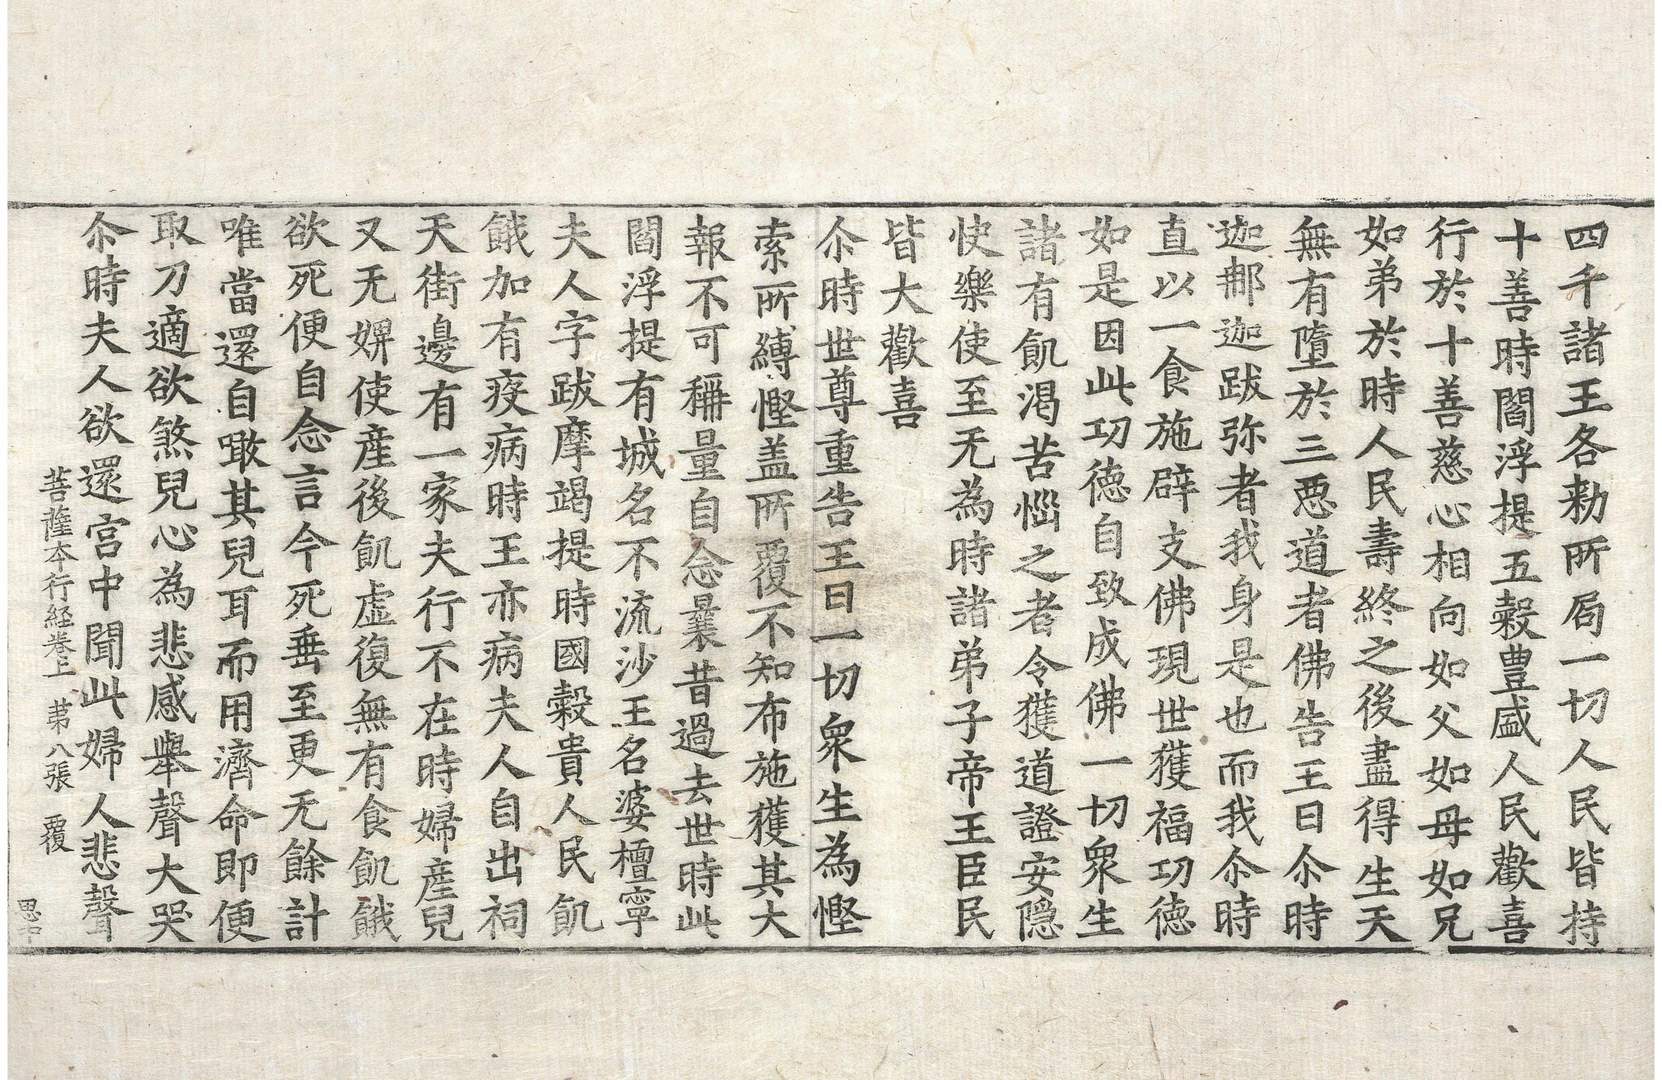 四千諸王各勑所局一切人民皆持
十善時閻浮提五穀豊盛人民歡喜
行於十善慈心相向如父如母如兄
如弟於時人民壽終之後盡得生天
無有墮於三惡道者佛告王曰尒時
迦郍迦跋弥者我身是也而我尒時
直以一食施辟支佛現世獲福功德
如是因此功德自致成佛一切衆生
諸有飢渴苦惱之者令獲道證安隱
快樂使至无為時諸弟子帝王臣民
皆大歡喜
尒時世尊重告王曰一切衆生為慳
索所縛慳盖所覆不知布施獲其大
報不可稱量自念曩昔過去世時此
閻浮提有城名不流沙王名婆檀寧
夫人字跋摩竭提時國穀貴人民飢
餓加有疫病時王亦病夫人自出祠
天街邊有一家夫行不在時婦產兒
又无婢使產後飢虛復無有食飢餓
欲死便自念言今死垂至更无餘計
唯當還自噉其兒耳而用濟命即便
取刀適欲煞兒心為悲感舉聲大哭
尒時夫人欲還宮中聞此婦人悲聲
菩薩本行経卷上 苐八張 覆
思中